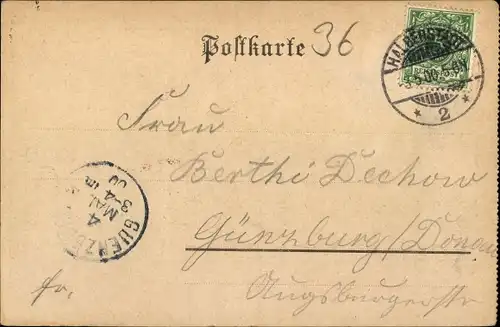 Postkarte 36
HALBERSTADT
* 2 *
Frau
Berthi Dechow
Günzburg/Donau
Augsburgerstr
fr.
GUENZB
4
MAI
3-4
00